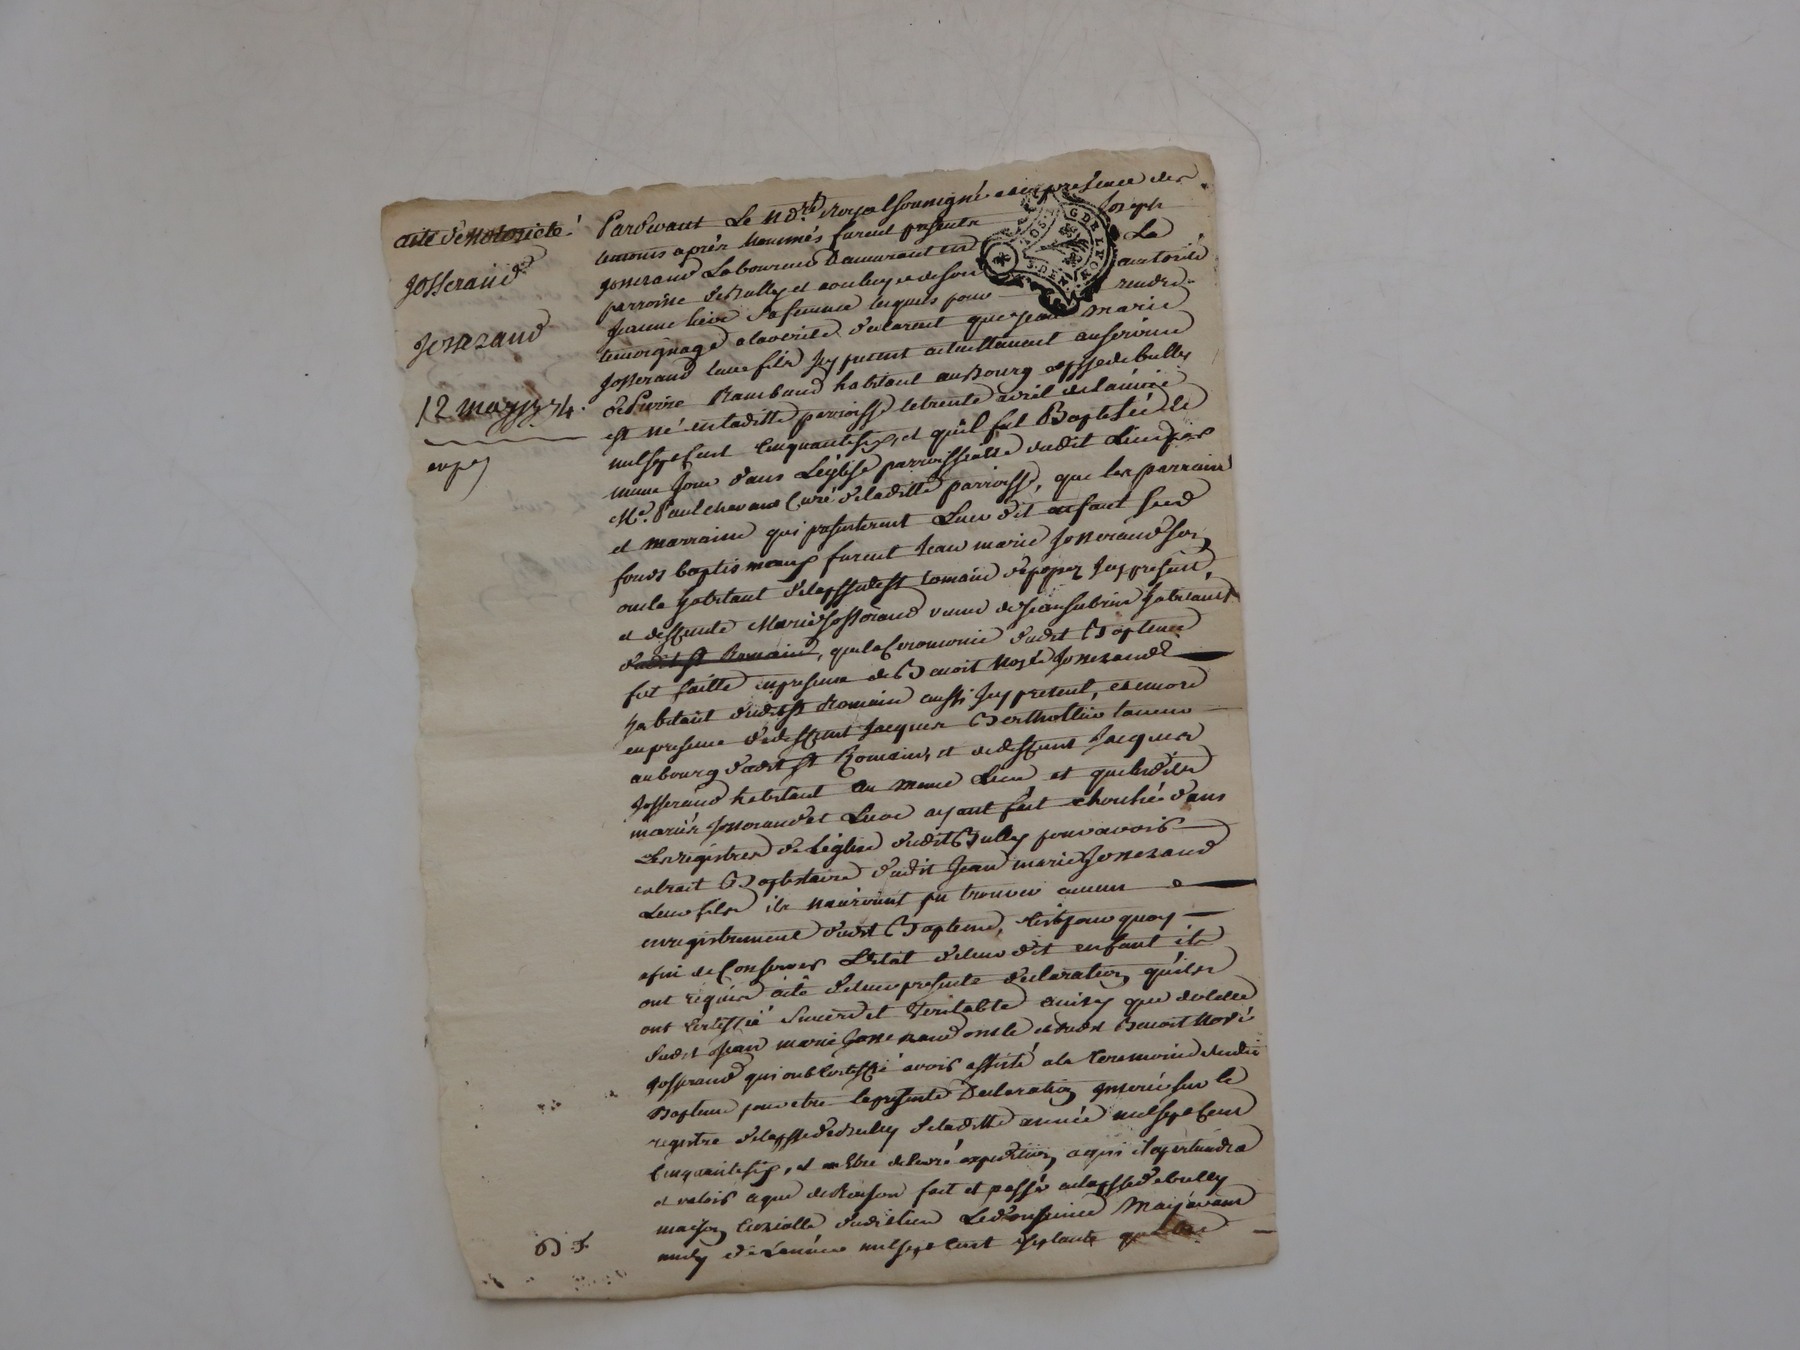 acte de Notorieté
Josserand
Josserand
12 may 1774.
exp.
Pardevant Le Nore. Royal Soussigné et en presence des
temoins aprés Nommés furent presents Joseph
Josserand Laboureur demeurant en La
parroisse de Bully et de son autorité
Jeanne sa femme lesquels pour rendre
temoignage a la verité declarent que Jean Marie
Josserand leur fils Icy present actuellement au service
de Pierre Rambaud habitant au Bourg et psse de bully
est né en laditte parroisse le trente avril de l'année
mil sept Cent Cinquante six, et qu'il fut Baptisé le
meme Jour dans L'eglise parroissialle dudit Lieu par
Mre. Paul Curé de laditte parroisse, que les parrain
et marraine qui presenterent Leur dit enfant sur
fonds baptismaux furent Jean marie Josserand son
oncle habitant de la psse de St Romain de popez Icy present,
et deffunte Marie Josserand veuve de Jean habitante
dudit St Romain, que la Ceremonie dudit Bapteme
fut faitte en presence de Benoit Noyé Josserand
habitant dudit St Romain aussi Icy present, encore
en presence de deffunt Jacques Bertholier
au bourg dudit St Romain, et de deffunt Jacques
Josserand habitant au meme Lieu et que lesdits
mariés Josserand et ayant fait cherché dans
Les registres de L'eglise dudit Bully pour avoir
extrait Baptistaire dudit Jean marie Josserand
Leur fils ils n'auroient pu trouver aucun
enregistrement dudit Bapteme, c'est pour quoy
afin de Conserver L'etat de leur dit enfant ils
ont requis acte de leur presente declaration, qu'ils
ont certiffié sincere et Veritable ainsy que celle
dudit Jean marie Josserand oncle et dudit Benoit Noyé
Josserand qui ont certiffié avoir assisté a la Ceremonie dudit
Bapteme pour etre la presente Declaration Inserée sur le
registre de la psse de Bully de laditte année mil sept Cent
Cinquante six, et en etre delivré expedition a qui il apartiendra
et valoir a que de Raison fait et passé a la psse de bully
maison Curialle dudit Lieu Le douzieme May avant
midy de L'année mil sept Cent septante quatre